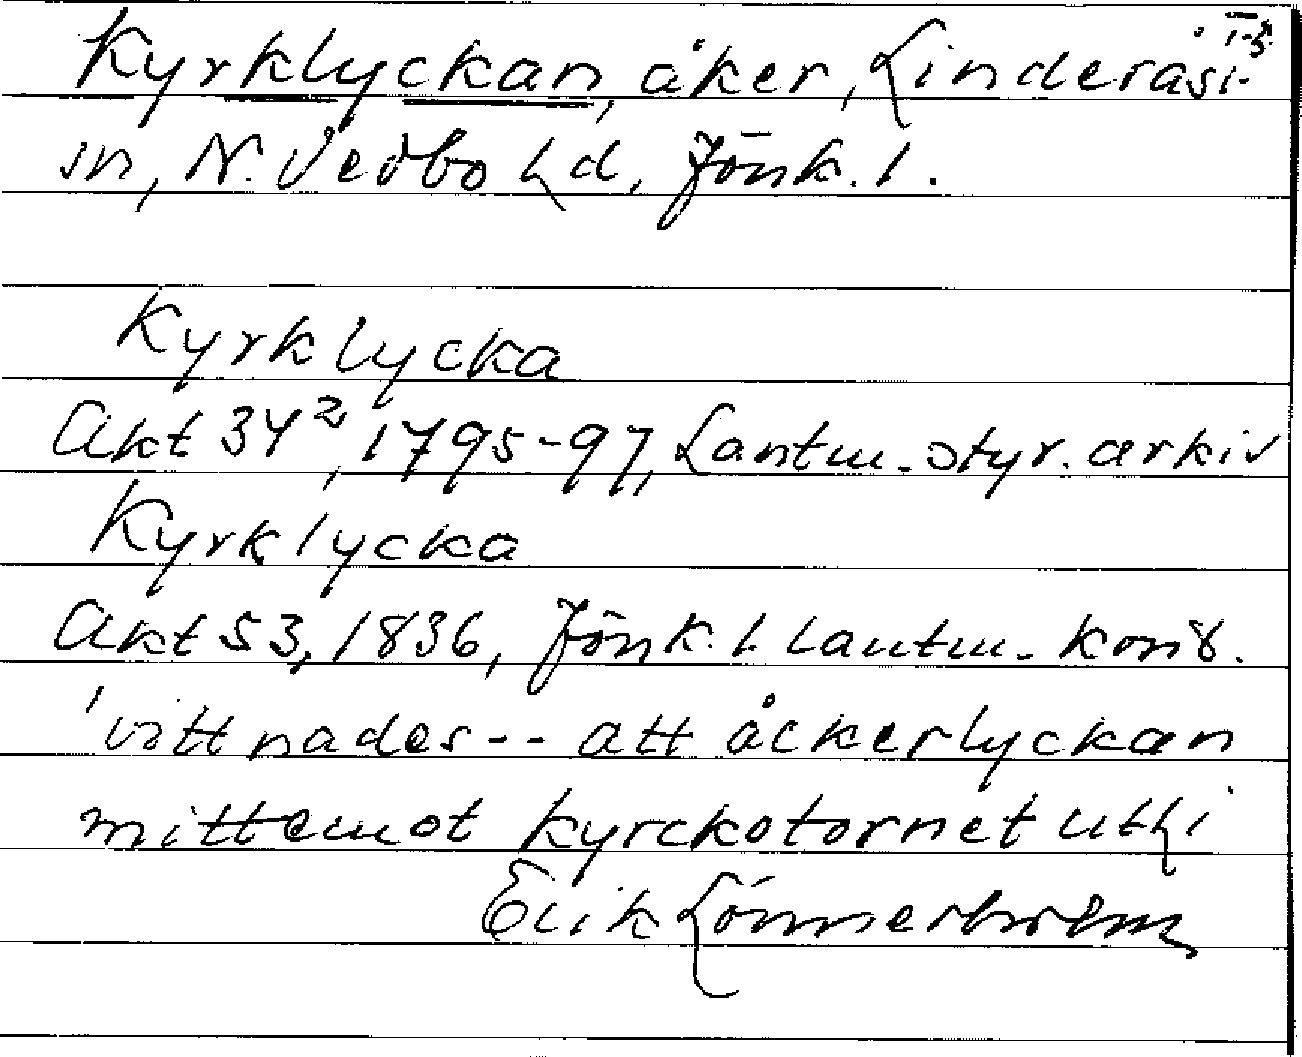 1-5.
Kyrklyckan, åker, Linderås
sn, N. Vedbo hd, Jönk. l.
Kyrklycka
Akt 34², 1795-97, Lantm. styr. arkiv
Kyrklycka
Akt 53, 1836, Jönk. l. Lantm.-kont.
'vittnades -- att åckerlyckan
mittemot kyrckotornet uthi
Erik Lönnerholm